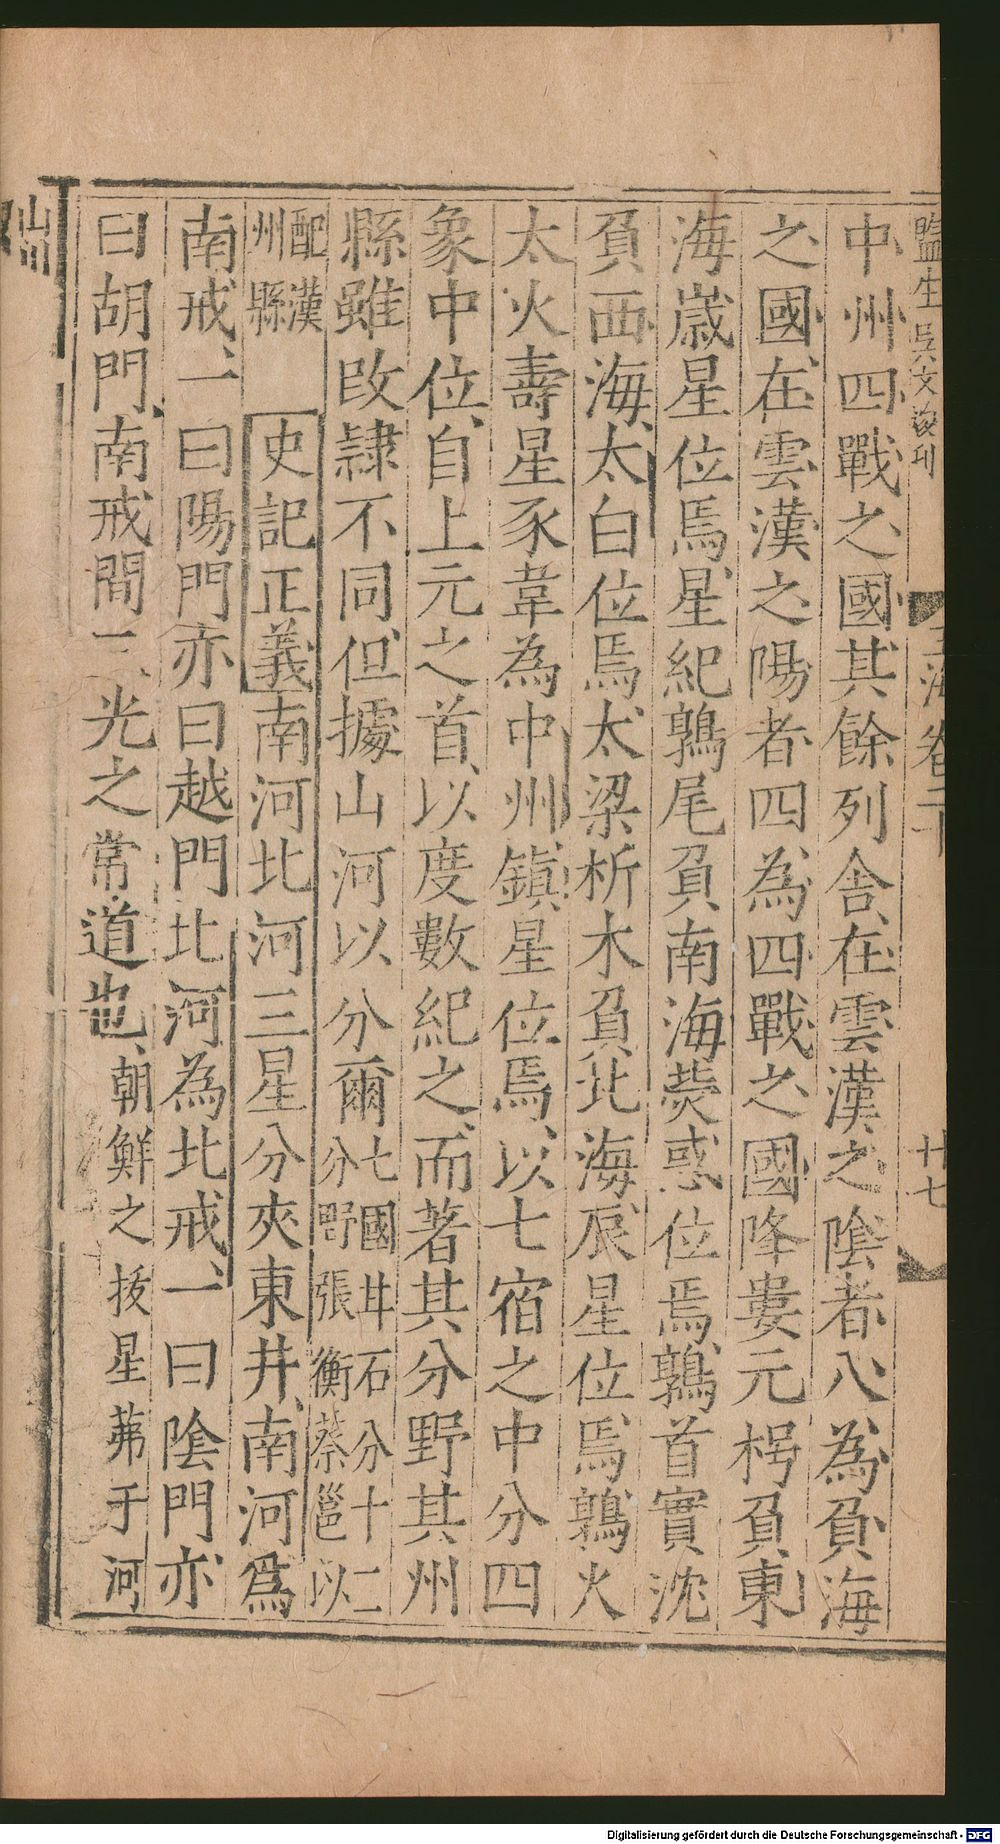 監生吳文
玉海卷二十
廿七
中州四戰之國其餘列舍在雲漢之陰者八為負海
之國在雲漢之陽者四為四戰之國降婁元枵負東
海歲星位焉星紀鶉尾負南海熒惑位焉鶉首實沈
負西海太白位焉太梁析木負北海辰星位焉鶉火
太火壽星豕韋為中州鎮星位焉以七宿之中分四
象中位自上元之首以度數紀之而著其分野其州
縣雖改隷不同但據山河以分爾七國甘石分十二
分野張衡蔡邕以
配漢
州縣 史記正義南河北河三星分夾東井南河爲
南戒一曰陽門亦曰越門北河為北戒一曰陰門亦
曰胡門南戒間三光之常道也朝鮮之拔星茀于河
山川
Digitalisierung gefördert durch die Deutsche Forschungsgemeinschaft - DFG